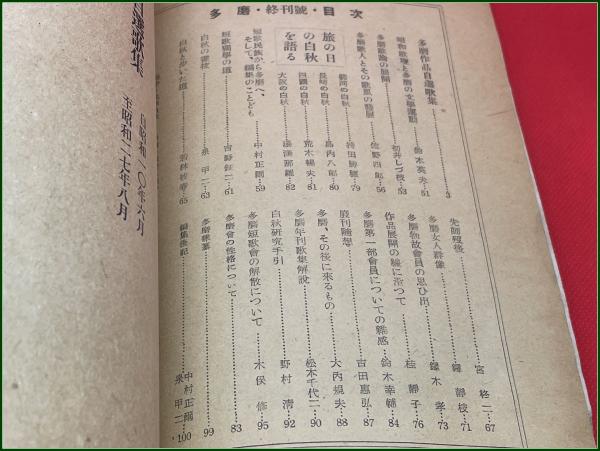 多磨・終刊號・目次
多磨作品自選歌集……3
昭和歌壇と多磨の文學運動……鈴木英夫……51
多磨歌論の展開……初井しづ枝……53
多磨歌人とその歌風の發展……佐野四郎……56
旅の日の白秋を語る
持田勝穗……79
長崎の白秋……島内八郎……80
四國の白秋……荒木暢夫……81
大阪の白秋……82
短歌民族から多磨へ、
そして、編集のことども……中村正爾……59
短歌開學の道……61
白秋の書棟……泉甲二……63
白秋と歩いた道……若林牧春……65
先師歿後……宮柊二……67
多磨女人群像……鐸靜枝……71
多磨物故會員の思ひ出……鐸木孝……73
作品展開の線に沿つて……桂靜子……76
多磨第一部會員についての雜感……鈴木幸輔……84
廢刊隨想……吉田惠弘……87
多磨、その後に來るもの……大内規夫……88
多磨年刊歌集解說……松本千代二……90
白秋研究手引……野村清……92
多磨短歌會の解散について……木俣修……95
多磨會の性格について……83
多磨……99
編集後記……中村正爾
泉甲二……100
自選歌集
自昭和一〇年六月
至昭和二七年八月